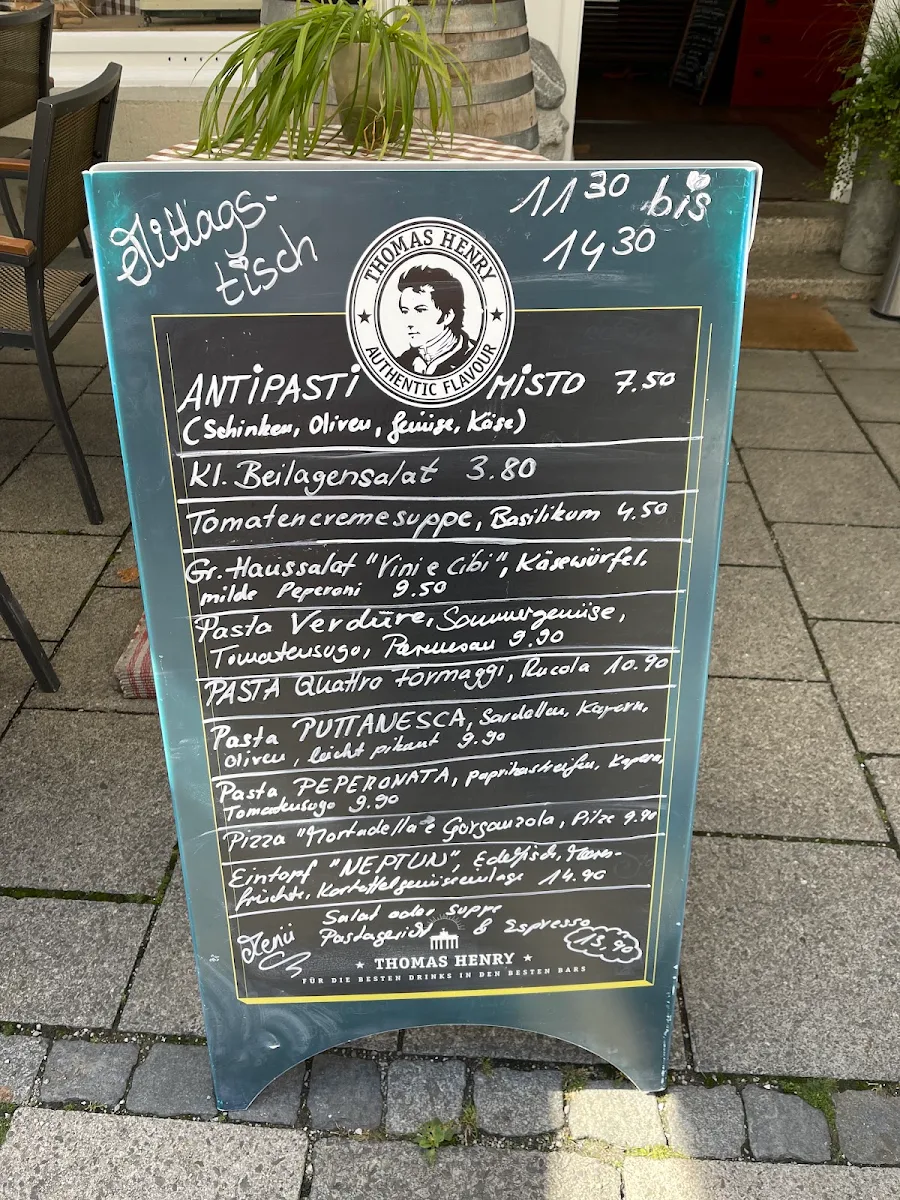 Mittags-
tisch
11 30 bis
14 30
THOMAS HENRY
AUTHENTIC FLAVOUR
ANTIPASTI MISTO 7.50
(Schinken, Oliven, Gemüse, Käse)
Kl. Beilagensalat 3.80
Tomatencremesuppe, Basilikum 4.50
Gr. Haussalat "Vini e Cibi", Käsewürfel,
milde Peperoni 9.50
Pasta Verdüre, Sommergemüse,
Tomatensugo, Parmesan 9.90
PASTA Quattro formaggi, Rucola 10.90
Pasta PUTTANESCA, Sardellen, Kapern,
Oliven, leicht pikant 9.90
Pasta PEPERONATA, Paprikastreifen, Kapern,
Tomatensugo 9.90
Pizza "Mortadella e Gorgonzola, Pilze 9.90
Eintopf "NEPTUN", Edelfisch, Meeres-
früchte, Kartoffelgemüseeinlage 14.90
Menü
Salat oder Suppe
Pastagericht & Espresso 13,90
THOMAS HENRY
FÜR DIE BESTEN DRINKS IN DEN BESTEN BARS